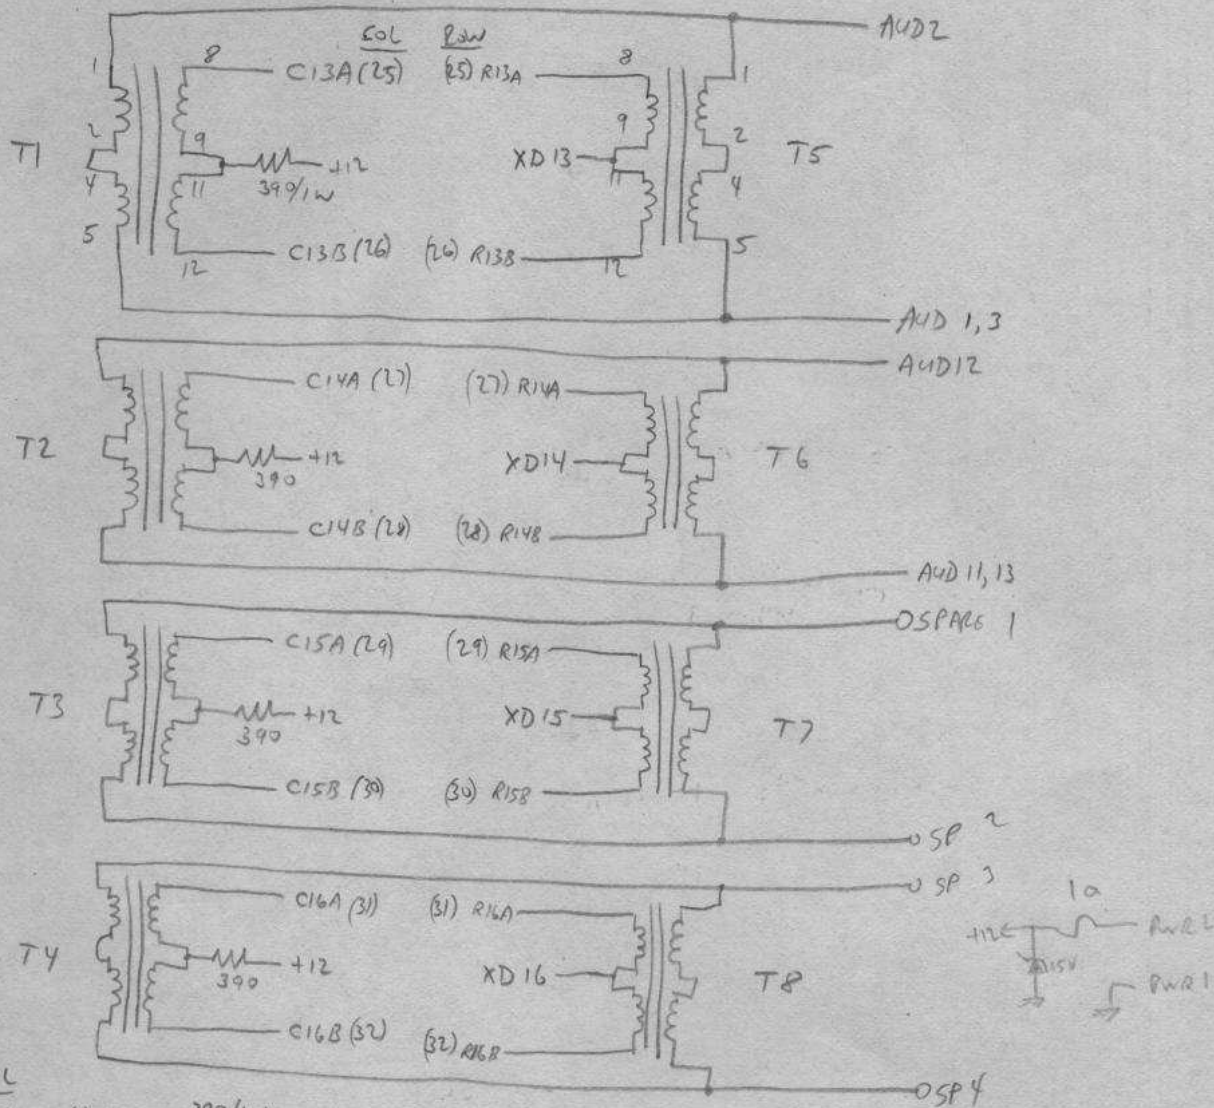 COL ROW
AUD2
1 8 C13A (25) (25) R13A 8 1
T1 2 9 390/1W +12 XD13 9 2 T5
4 11 11 4
5 12 C13B (26) (26) R13B 12 5
AUD 1,3
AUD12
C14A (27) (27) R14A
T2 390 +12 XD14 T6
C14B (28) (28) R14B
AUD 11,13
SPARE 1
C15A (29) (29) R15A
T3 390 +12 XD15 T7
C15B (30) (30) R15B
SP 2
SP 3
C16A (31) (31) R16A
T4 390 +12 XD16 T8
C16B (32) (32) R16B
SP4
1a
+12 PWR2
15V
PWR1